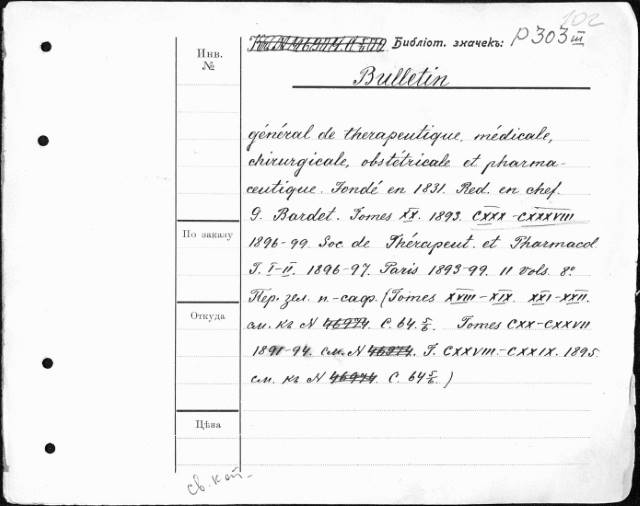 102
Инв.
№
Библіот. значекъ: P303 III
Bulletin
général de therapeutique, médicale,
chirurgicale, obstétricale et pharma-
ceutique. Fondé en 1831. Red. en chef.
G. Bardet. Tomes XX. 1893. CXXX-CXXXVIII
По заказу
1896-99. Soc. de Thérapeut. et Pharmacol
T. I-II. 1896-97. Paris 1893-99. 11 vols. 8°
Пер. зел. п.-саф. (Tomes XVIII-XIX. XXI-XXII.
Откуда
см. къ N 46974. C. 64. 5/6. Tomes CXX-CXXVII
1891-94. см. N 46974. T. CXXVIII-CXXIX. 1895.
см. къ N 46974. C. 64 5/6.)
Цѣна
св. кат.